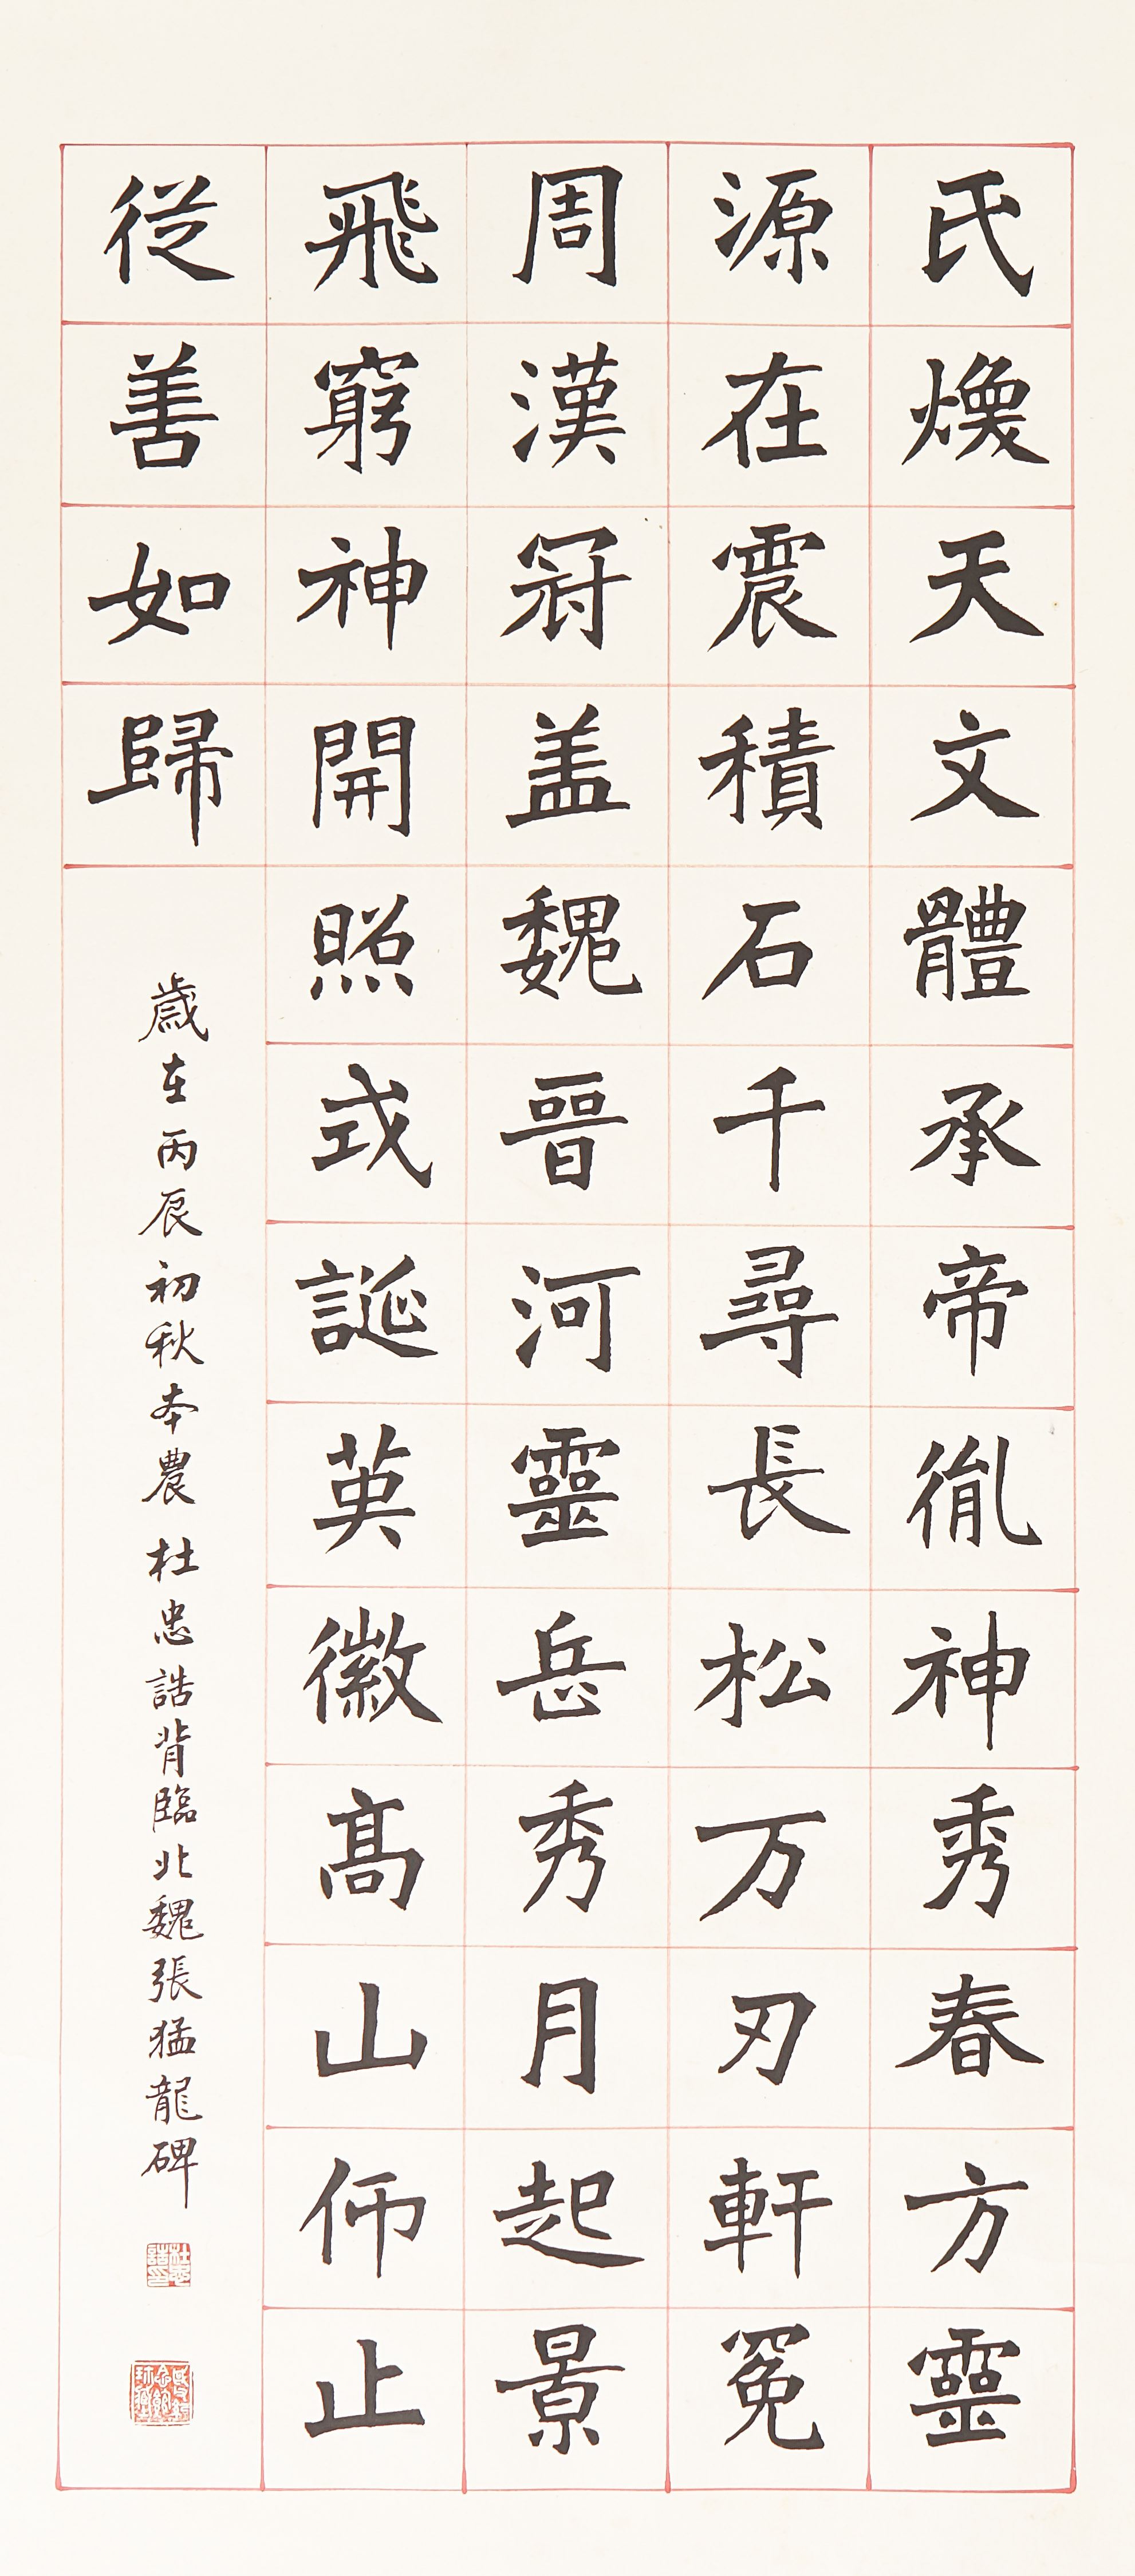 氏煥天文體承帝胤神秀春方靈
源在震積石千尋長松万刃軒冕
周漢冠盖魏晉河靈岳秀月起景
飛窮神開照式誕英徽高山仰止
從善如歸
歲在丙辰初秋本農杜忠誥背臨北魏張猛龍碑
杜忠誥印